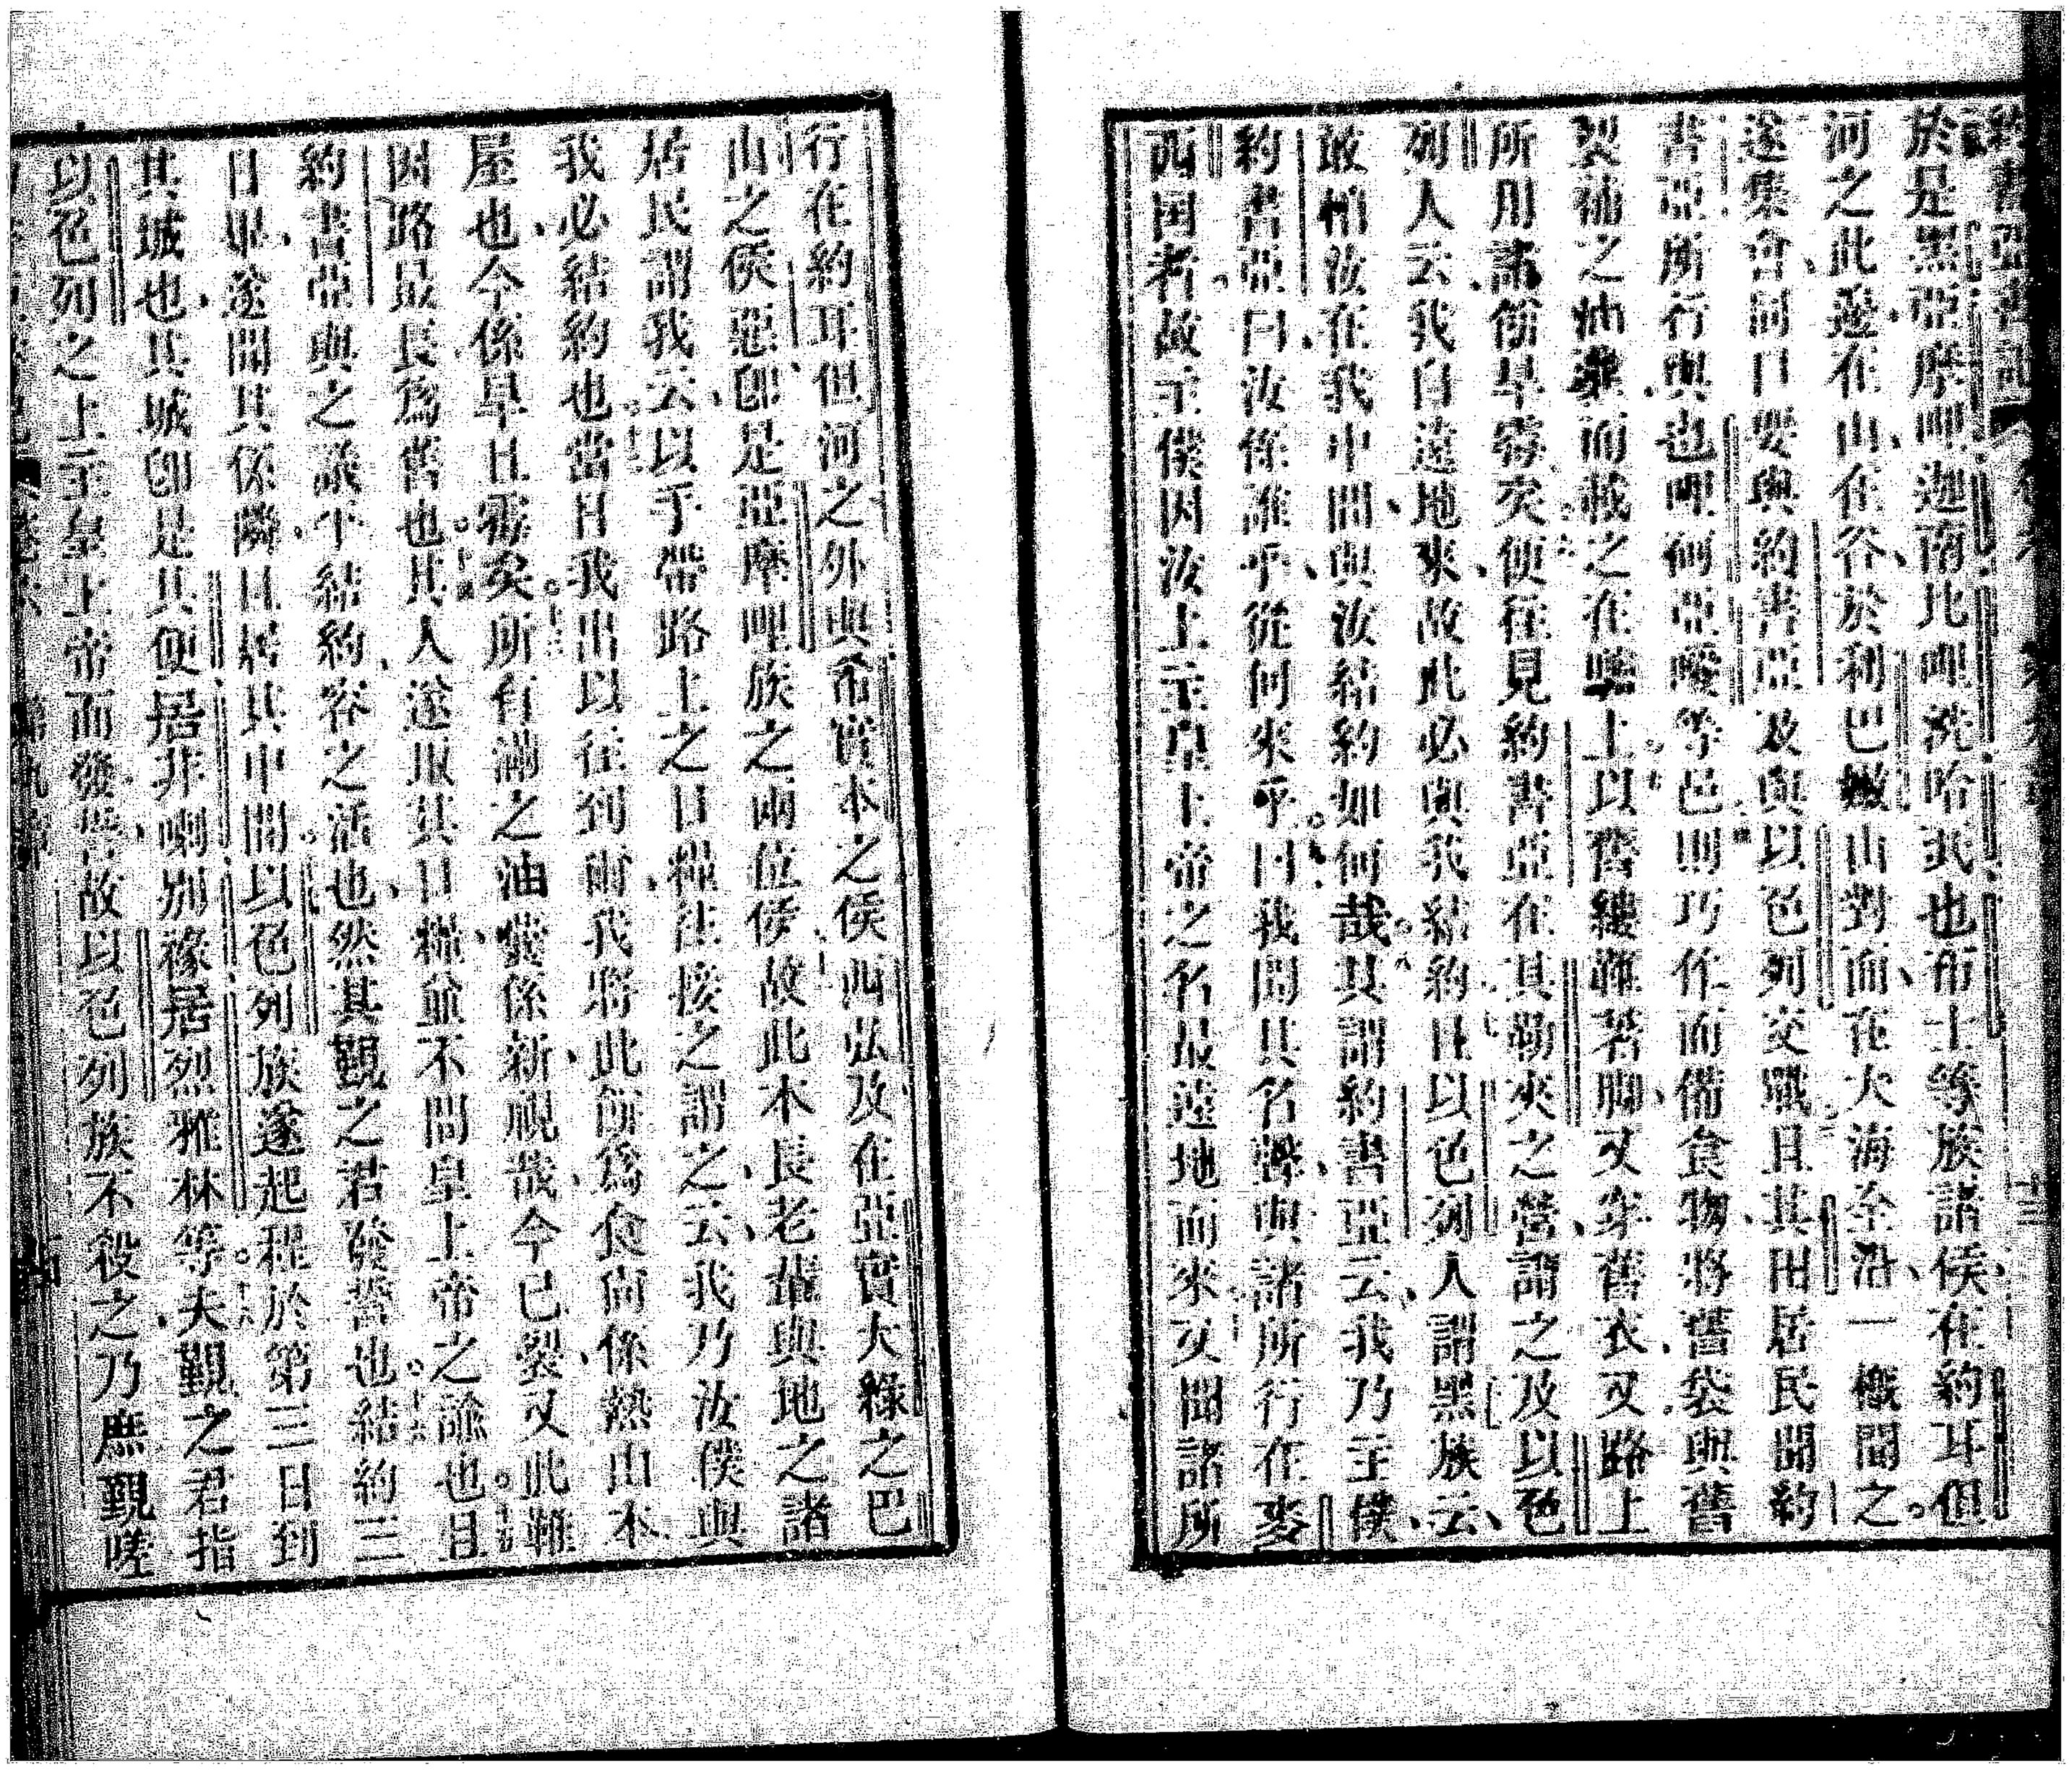 於是黑亞摩哩迦南比哩洗哈武也布士等族諸侯在約耳但
河之此邊在山在谷於利巴嫩山對面在大海至沿一概聞之
遂集會同口要與約書亞及與以色列交戰且其田居民聞約
書亞所行與也哩何亞唆等邑則巧作而備食物將舊袋與舊
裂補之油囊而載之在驢上以舊縷雜著脚又穿舊衣又路上
所用諸餅旱霉矣便往見約書亞在其勒夾之營謂之及以色
列人云我自遠地來故此必與我結約且以色列人謂黑族云
敢怕汝在我中間與汝結約如何哉其謂約書亞云我乃主僕
約書亞曰汝係誰乎從何來乎曰我聞其名聲與諸所行在麥
西因者故主僕因汝上主皇上帝之名最遠地而來又聞諸所
行在約耳但河之外與希實本之侯西弘及在亞實大祿之巴
山之侯惡即是亞摩哩族之兩位侯故此本長老輩與地之諸
居民謂我云以手帶路上之日糧往接之謂之云我乃汝僕與
我必結約也當日我出以往到爾我將此餅為食尚係熱由本
屋也今係旱且霉矣所有滿之油囊係新視哉今已裂又此鞋
因路最長為舊也其人遂取其日糧並不問皇上帝之諭也且
約書亞與之議平結約容之活也然其覲之君發誓也結約三
日畢遂聞其係隣且居其中間以色列族遂起程於第三日到
其城也其城即是其便居非喇別祿居烈雅林等夫覲之君指
以色列之上主皇上帝而發誓故以色列族不殺之乃庶覲嗟